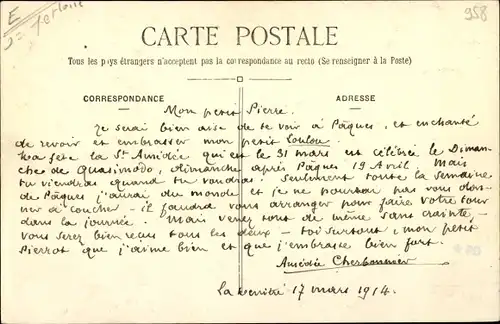 E
958
CARTE POSTALE
Tous les pays étrangers n'acceptent pas la correspondance au recto (Se renseigner à la Poste)
CORRESPONDANCE
ADRESSE
Mon petit Pierre.
Je serai bien aise de te voir à Pâques, et enchanté
de revoir et embrasser mon petit Loulou.
Ma fête la St Amédée qui est le 31 mars est célébrée le Diman-
che de Quasimodo, dimanche après Pâques 19 Avril. Mais
tu viendras quand tu voudras. Seulement toute la semaine
de Pâques j'aurai du monde et je ne pourrai pas vous don-
ner à coucher - il faudra vous arranger pour faire votre tour
dans la journée. Mais venez tout de même sans crainte,
vous serez bien reçus tous les deux - toi surtout, mon petit
Pierrot que j'aime bien et que j'embrasse bien fort.
Amédée Cherbonnier
17 mars 1914.